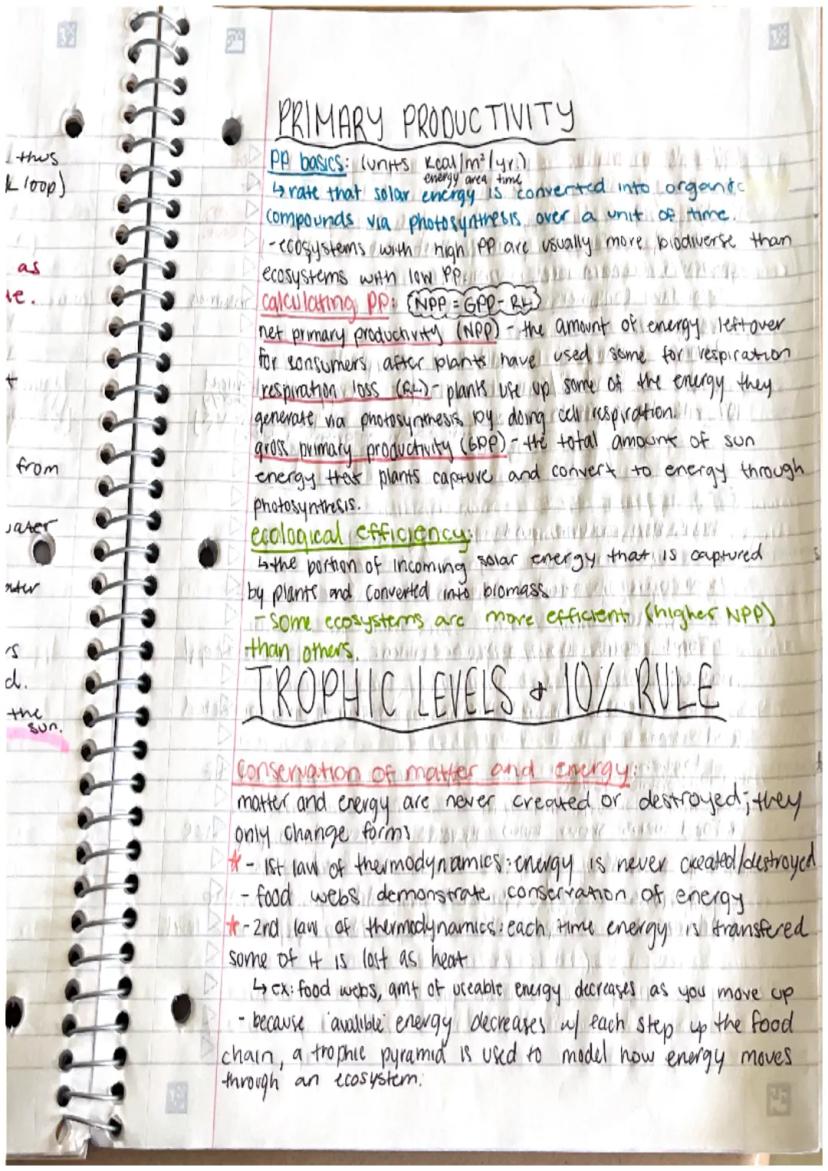 thus
k loop)
as
te.
t
from
water
outer
rs
d.
the
sun.
PRIMARY PRODUCTIVITY
PP basics: (units kcal/m²/yr.)
energy area time
↳rate that solar energy is converted into organic
compounds via photosynthesis over a unit of time.
-ecosystems with high PP are usually more biodiverse than
ecosystems with low PP.
calculating PP: NPP = GPP - RL
net primary productivity (NPP) - the amount of energy leftover
for consumers after plants have used some for respiration
respiration loss (RL) - plants use up some of the energy they
generate via photosynthesis by doing cell respiration.
gross primary productivity (GPP) - the total amount of sun
energy that plants capture and convert to energy through
photosynthesis.
ecological efficiency:
↳the portion of incoming solar energy that is captured
by plants and converted into biomass
- Some ecosystems are more efficient (higher NPP)
than others.
TROPHIC LEVELS + 10% RULE
conservation of matter and energy:
matter and energy are never created or destroyed; they
only change forms
* - 1st law of thermodynamics: energy is never created/destroyed
- food webs demonstrate conservation of energy
* - 2nd law of thermodynamics: each time energy is transfered
some of it is lost as heat
↳ ex: food webs, amt of useable energy decreases as you move up
- because avalible energy decreases w/ each step up the food
chain, a trophic pyramid is used to model how energy moves
through an ecosystem.